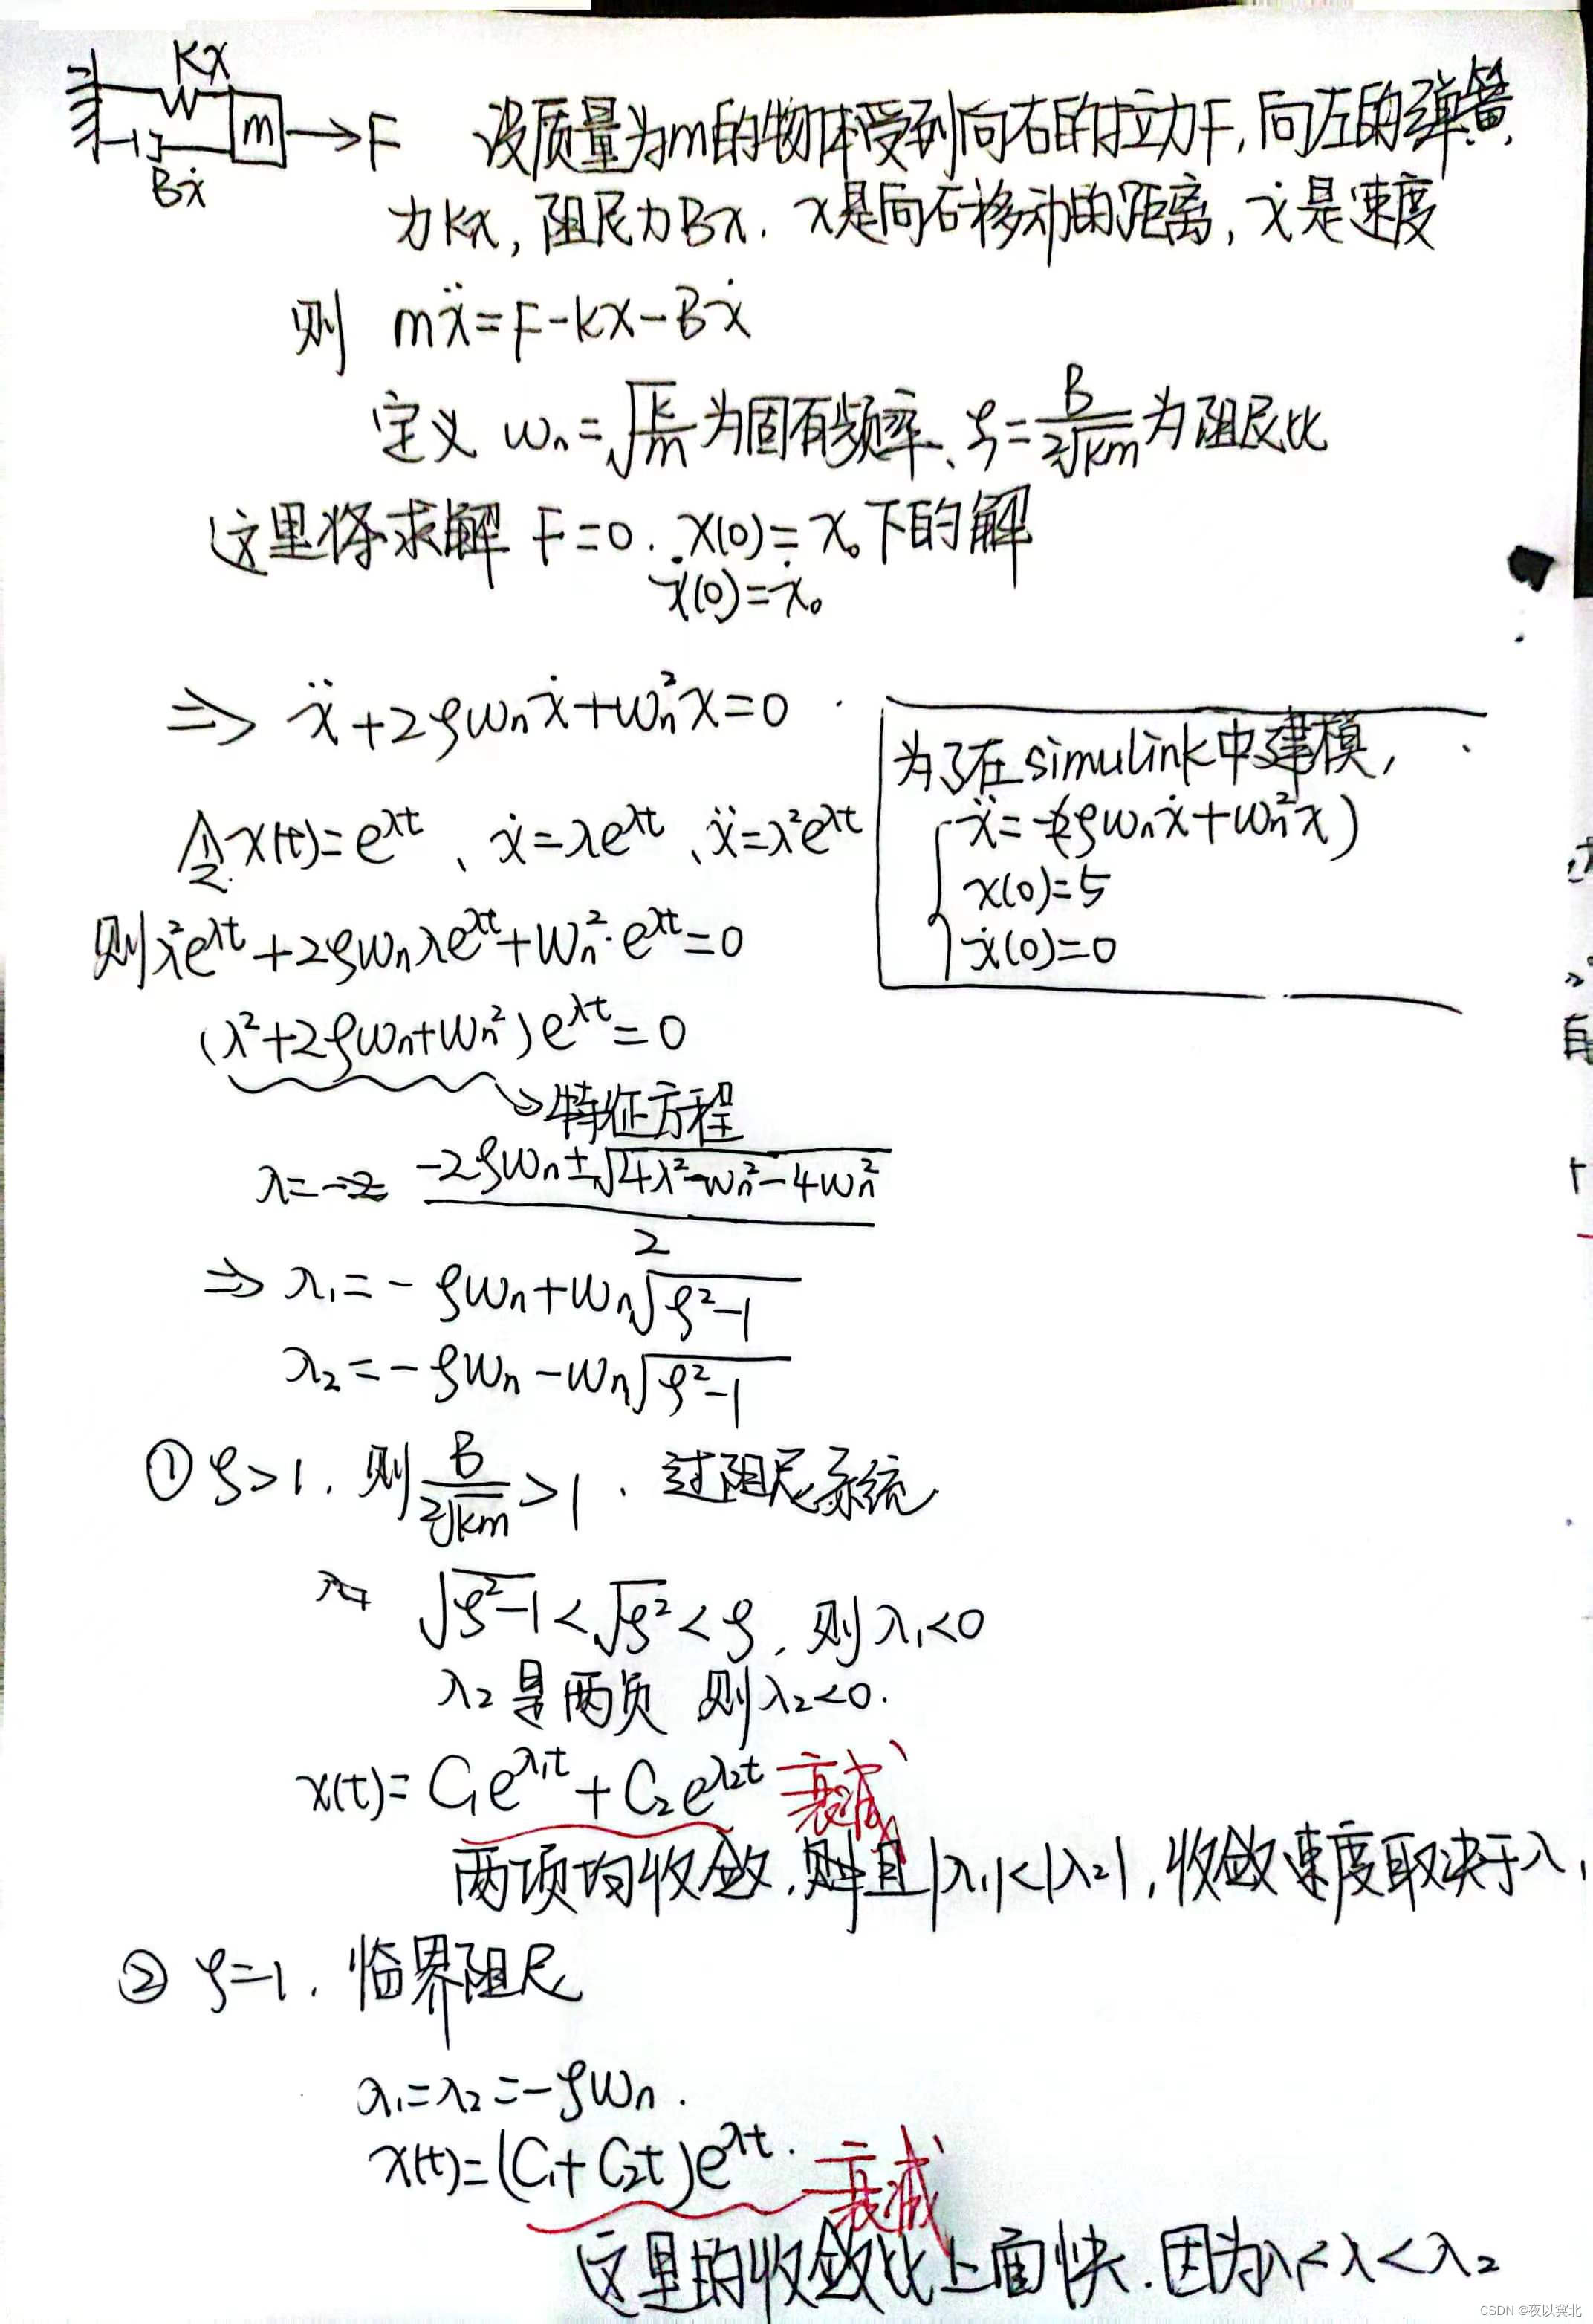 Kx
m → F
Bẋ
设质量为m的物体受到向右的拉力F,向左的弹簧
力Kx,阻尼力Bx. x是向右移动的距离,ẋ是速度
则 mẍ=F-kx-Bẋ
定义 ωn=√(k/m)为固有频率、ζ=B/(2√km)为阻尼比
这里将求解 F=0. x(0)=x₀下的解
ẋ(0)=ẋ₀
⇒ ẍ+2ζωnẋ+ωn²x=0
为了在simulink中建模,
ẍ=-(2ζωnẋ+ωn²x)
x(0)=5
ẋ(0)=0
令x(t)=e^λt、ẋ=λe^λt、ẍ=λ²e^λt
则λ²e^λt+2ζωnλe^λt+ωn²·e^λt=0
(λ²+2ζωn+ωn²)e^λt=0
→特征方程
λ= (-2ζωn±√(4λ²-ωn²-4ωn²))/2
⇒ λ₁=-ζωn+ωn√(ζ²-1)
λ₂=-ζωn-ωn√(ζ²-1)
① ζ>1. 则B/(2√km)>1. 过阻尼系统
√(ζ²-1)<√ζ²<ζ, 则λ₁<0
λ₂是两负 则λ₂<0.
x(t)=C₁e^λ₁t+C₂e^λ₂t 衰减
两项均收敛,且|λ₁|<|λ₂|,收敛速度取决于λ₁
② ζ=1. 临界阻尼
λ₁=λ₂=-ζωn.
x(t)=(C₁+C₂t)e^λt. 衰减
这里的收敛比上面快.因为λ₁<λ<λ₂
CSDN @夜以冀北